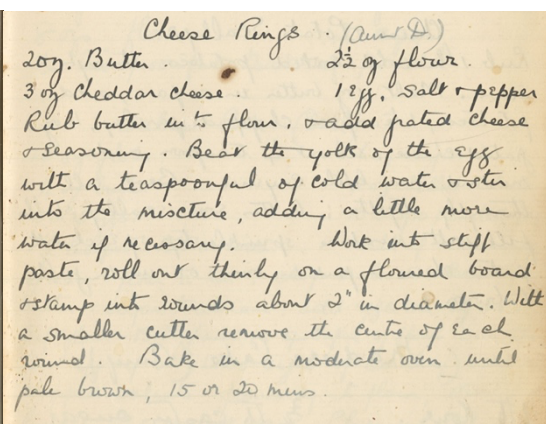 Cheese Rings. (Aunt D)
2oz. Butter. 2½ oz flour.
3 oz Cheddar cheese 1 Egg, Salt & pepper
Rub butter into flour, & add grated cheese
& seasoning. Beat the yolk of the Egg
with a teaspoonful of cold water & stir
into the mixture, adding a little more
water if necessary. Work into stiff
paste, roll out thinly on a floured board
& stamp into rounds about 2" in diameter. With
a smaller cutter remove the centre of each
round. Bake in a moderate oven until
pale brown, 15 or 20 mins.